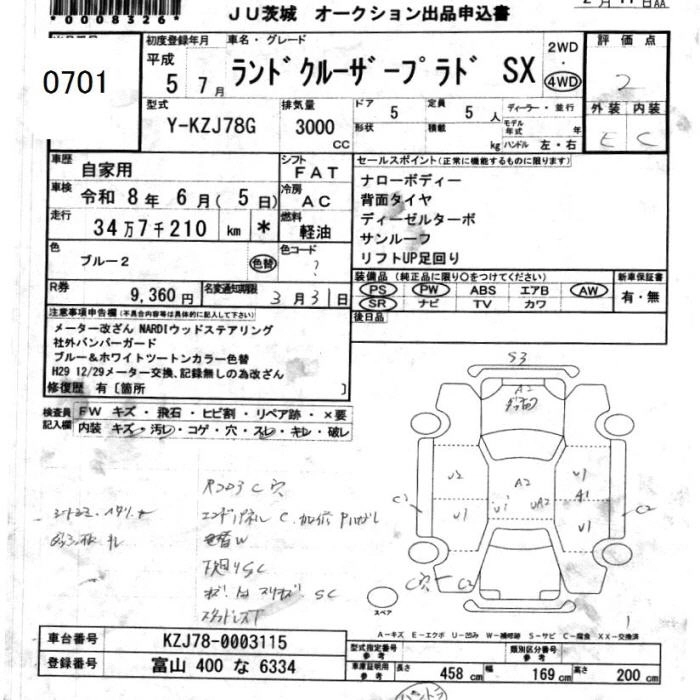 *0008326*
JU茨城 オークション出品申込書
0701
初度登録年月
車名・グレード
平成
5 7月
ランドクルーザープラド SX
2WD
・
4WD
評価点
2
型式
Y-KZJ78G
排気量
3000
CC
ドア
5
定員
5 人
ディーラー・並行
形状
積載
kg
モデル年式 年
ハンドル 左・右
外装 内装
E C
車歴
自家用
シフト
FAT
車検
令和 8年 6月( 5日)
冷房
AC
走行
34万7千210 km *
燃料
軽油
色
ブルー2
色替
色コード
?
R券
9,360円
名変通知期限
3月31日
セールスポイント(正常に機能するものに限ります)
ナローボディー
背面タイヤ
ディーゼルターボ
サンルーフ
リフトUP足回り
装備品 (純正品に限り○をつけてください)
新車保証書
PS PW ABS エアB AW
SR ナビ TV カワ
有・無
後日品
注意事項申告欄(不具合内容等は具体的に記入して下さい)
メーター改ざん NARDIウッドステアリング
社外バンパーガード
ブルー&ホワイトツートンカラー色替
H29 12/29メーター交換、記録無しの為改ざん
修復歴 有〔箇所 〕
検査員記入欄
FW キズ・飛石・ヒビ割・リペア跡・×要
内装 キズ・汚レ・コゲ・穴・スレ・キレ・破レ
S3
A2
U2
U1
A2
U1
A1
U1
U1
UA2
U1
C1
C2
C穴
C2
コアサポC穴
エンドパネル C
色替W
下廻りSC
SC
スペア
A-キズ E-エクボ U-凹み W-補修跡 S-サビ C-腐食 XX-交換済
車台番号
KZJ78-0003115
登録番号
富山 400 な 6334
型式指定番号
参考
類別区分番号
参考
車庫証明用
参考
長さ 458 cm 幅 169 cm 高さ 200 cm